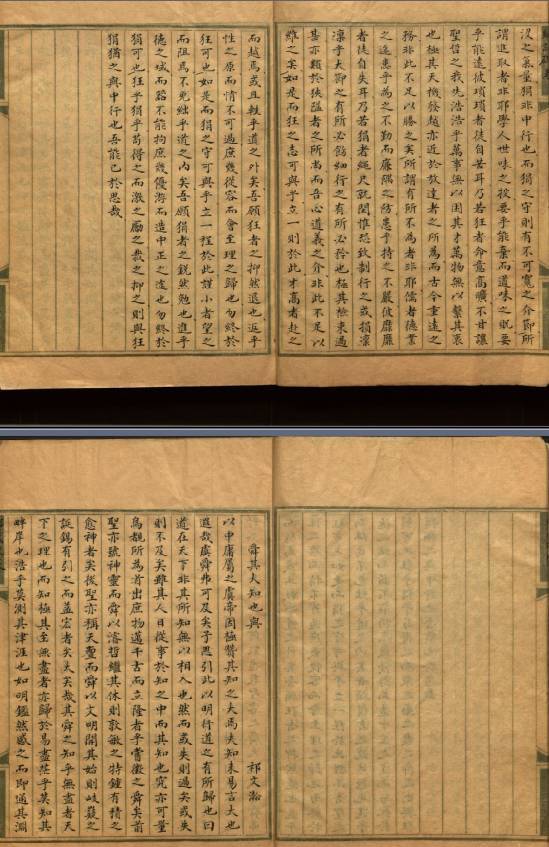 沒之氣量狷非中行也而狷之守則有不可寬之介節所
謂進取者非耶學人世味之投要乎能棄而道味之耽要
乎能遠彼瑣瑣者徒自苦耳乃若狂者命意高曠不甘讓
聖哲之我先浩浩乎萬事無以困其才萬物無以繫其衷
也極其天機發越亦近於放達者之所為而古今重遠之
務非此不足以勝之矣所謂有所不為者非耶儒者德業
之進患乎為之不勤而廉隅之防患乎持之不嚴彼靡靡
者徒自失耳乃若狷者繩尺就閑惟恐致制行之或損凜
凜乎大節之有所必飭細行之有所必矜也極其檢束過
甚亦類於狹隘者之所為而吾心道義之介非此不足以
維之矣如是而狂之志可與乎立一則於此才高者赴之
而越焉或且軼乎道之外矣吾願狂者之抑然退也返乎
性之原而情不可過庶幾從容而會至理之歸也勿終於
狂可也如是而狷之守可與乎立一程於此謹小者望之
而阻焉不免絀乎道之內矣吾願狷者之銳然勉也進乎
德之域而諮不能拘庶幾優游而造中正之途也勿終於
狷可也狂乎狷乎苟得之而激之勵之裁之抑之則與狂
狷猶之與中行也吾能已於思哉
舜其大知也與
祁文瀚
以中庸屬之虞帝因極贊其知之大焉夫知未易言大也
邈哉虞舜弗可及矣子思引此以明行道之有所歸也曰
道在天下非其所知無以相入也然而或失則過矣或失
則不及矣雖其人日從事於知之中而其知也究亦可量
烏覩所為首出庶物邁千古而立隆者乎嘗徵之舜矣前
聖亦號神靈而舜以濬哲繼其休則敦敏之特鍾有積之
愈神者矣後聖亦稱天亶而舜以文明開其始則岐嶷之
誕錫有引之而益宏者矣大矣哉其舜之知乎無盡者天
下之理也而知極其至無盡者亦歸於易盡茫乎莫知其
畔岸也浩乎莫測其津涯也如明鑑然感之而即通其淵